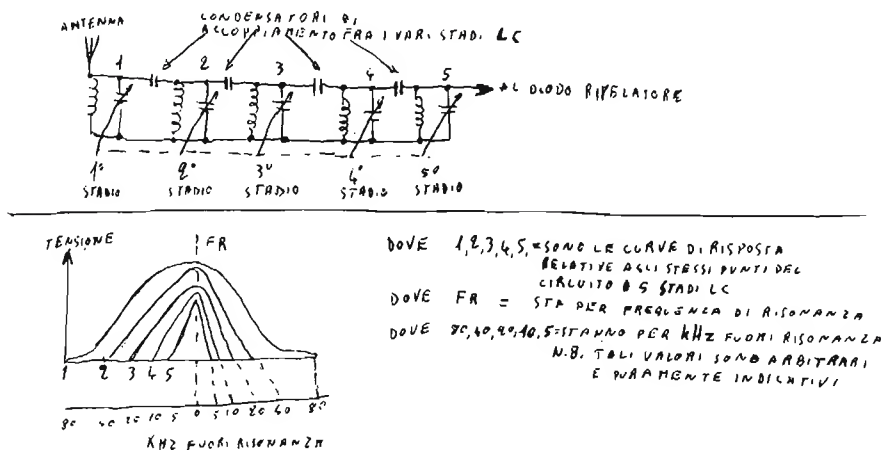 ANTENNA
CONDENSATORI DI
ACCOPPIAMENTO FRA I VARI STADI LC
1 2 3 4 5
AL DIODO RIVELATORE
1° 2° 3° 4° 5°
STADIO STADIO STADIO STADIO STADIO
TENSIONE
FR
1 2 3 4 5
80 40 20 10 5 0 5 10 20 40 80
KHZ FUORI RISONANZA
DOVE 1,2,3,4,5,=SONO LE CURVE DI RISPOSTA
RELATIVE AGLI STESSI PUNTI DEL
CIRCUITO A 5 STADI LC
DOVE FR = STA PER FREQUENZA DI RISONANZA
DOVE 80,40,20,10,5=STANNO PER kHz FUORI RISONANZA
N.B. TALI VALORI SONO ARBITRARI
E PURAMENTE INDICATIVI